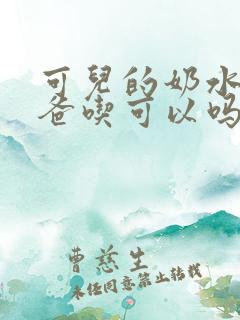 可兒的奶水
爸喫可以吗
曹慈生
未经同意禁止转载